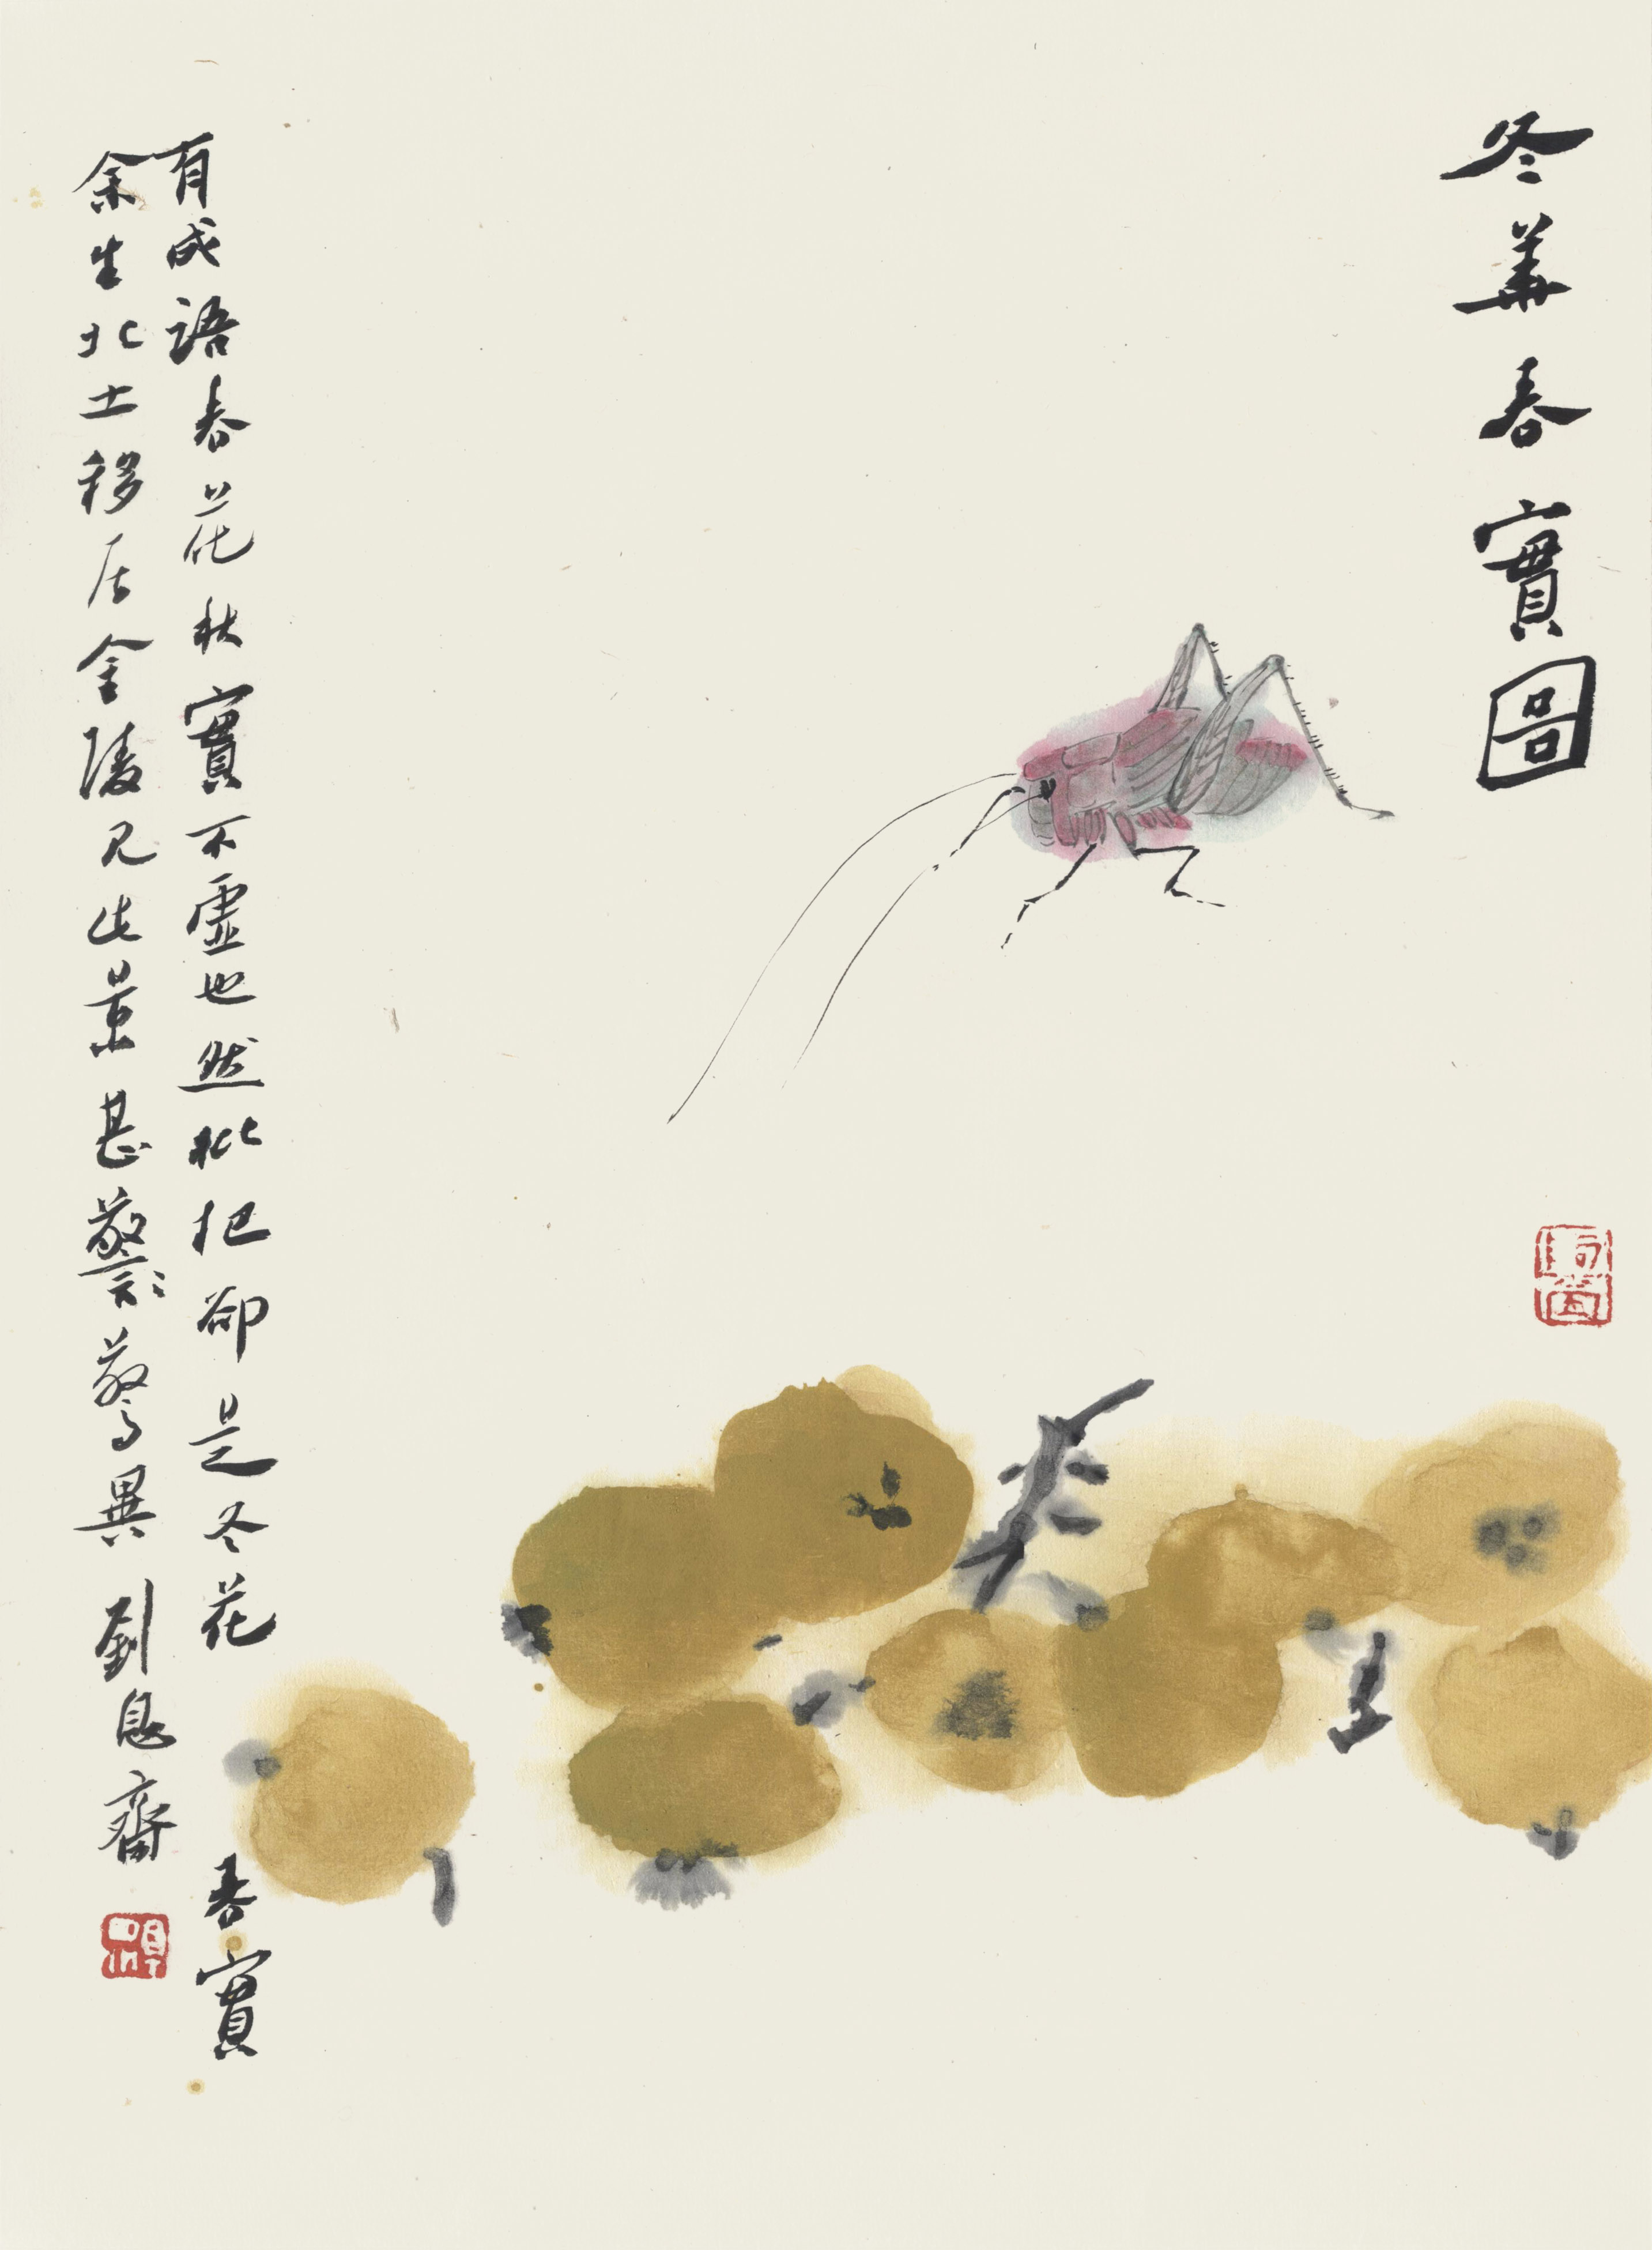 冬華春實圖
有成語春花秋實不虛也然枇杷卻是冬花春實
余生北土移居金陵見此景甚警驚異劉息齋